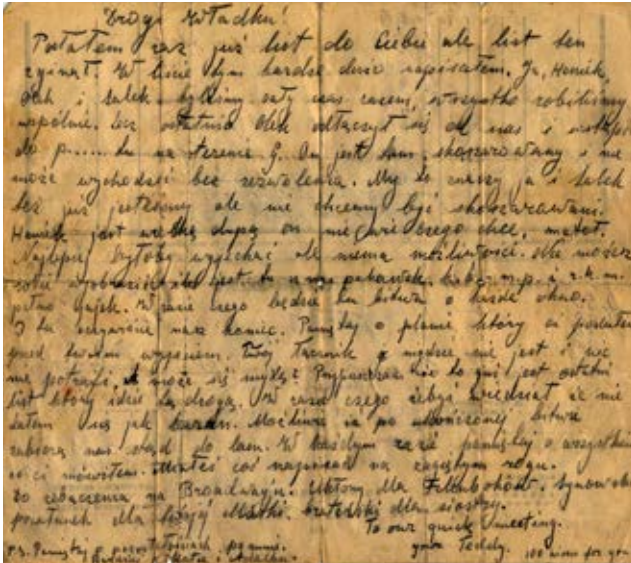 Drogi Władku!
Posłałem raz już list do Ciebie ale list ten
zginął. W liście tym bardzo dużo napisałem. Ja, Heniek,
Olek i Lolek byliśmy cały czas razem, wszystko robiliśmy
wspólnie. Lecz ostatnio Olek odłączył się od nas i wstąpił
do p..... tu na terenie G. On jest tam skoszarowany i nie
może wychodzić bez zezwolenia. My to znaczy ja i Lolek
też już jesteśmy ale nie chcemy być skoszarowani.
Heniek jest wielką dupą on nie wie czego chce,
Najlepiej byłoby wyjechać ale niema możliwości. Nie możesz
sobie wyobrazić ile jest tu
pełno W razie czego będzie tu bitwa o każde okno.
I tu nasz koniec. Pamiętaj o planie który ci
przed twoim wyjazdem. Twój nie jest i nic
nie potrafi. A może się mylę? że to już jest ostatni
list który idzie tą drogą. W razie czego żebyś wiedział że nie
dałem się jak baran. Możliwe że po ukończonej bitwie
zabiorą nas stąd do lasu. W każdym razie pamiętaj o wszystkim
co ci mówiłem. Miałeś coś napisać na rogu.
Do zobaczenia na Broadwayu. Ukłony dla
pocałunek dla twojej Matki, braterski dla siostry.
To our quick meeting.
your Teddy. 100 for you
P.S. Pamiętaj o pozostałościach po mnie.